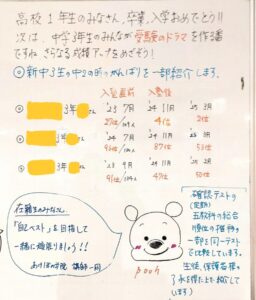 高校1年生のみなさん、卒業、入学おめでとう!!
次は、中学3年生のみんなが受験のドラマを作る番
ですね。さらなる成績アップをめざそう!
◎新中3生の中2の時のがんばりを一部紹介します。
入塾直前 入塾後
3年 '23 7月 '24 11月 '25 3月
41位 2位
3年 '24 7月 '24 11月 '25 3月
87位 53位
3年 '23 9月 '24 11月 '25 3月
47位
在籍生のみなさん、
「自己ベスト」を目指して
一緒に頑張りましょう!!
講師一同
pooh
確認テストの
(定期)
五教科の総合
順位の推移の
一部を同一テスト
で比較しています。
生徒、保護者様の
了承を得た上で掲示して
います)